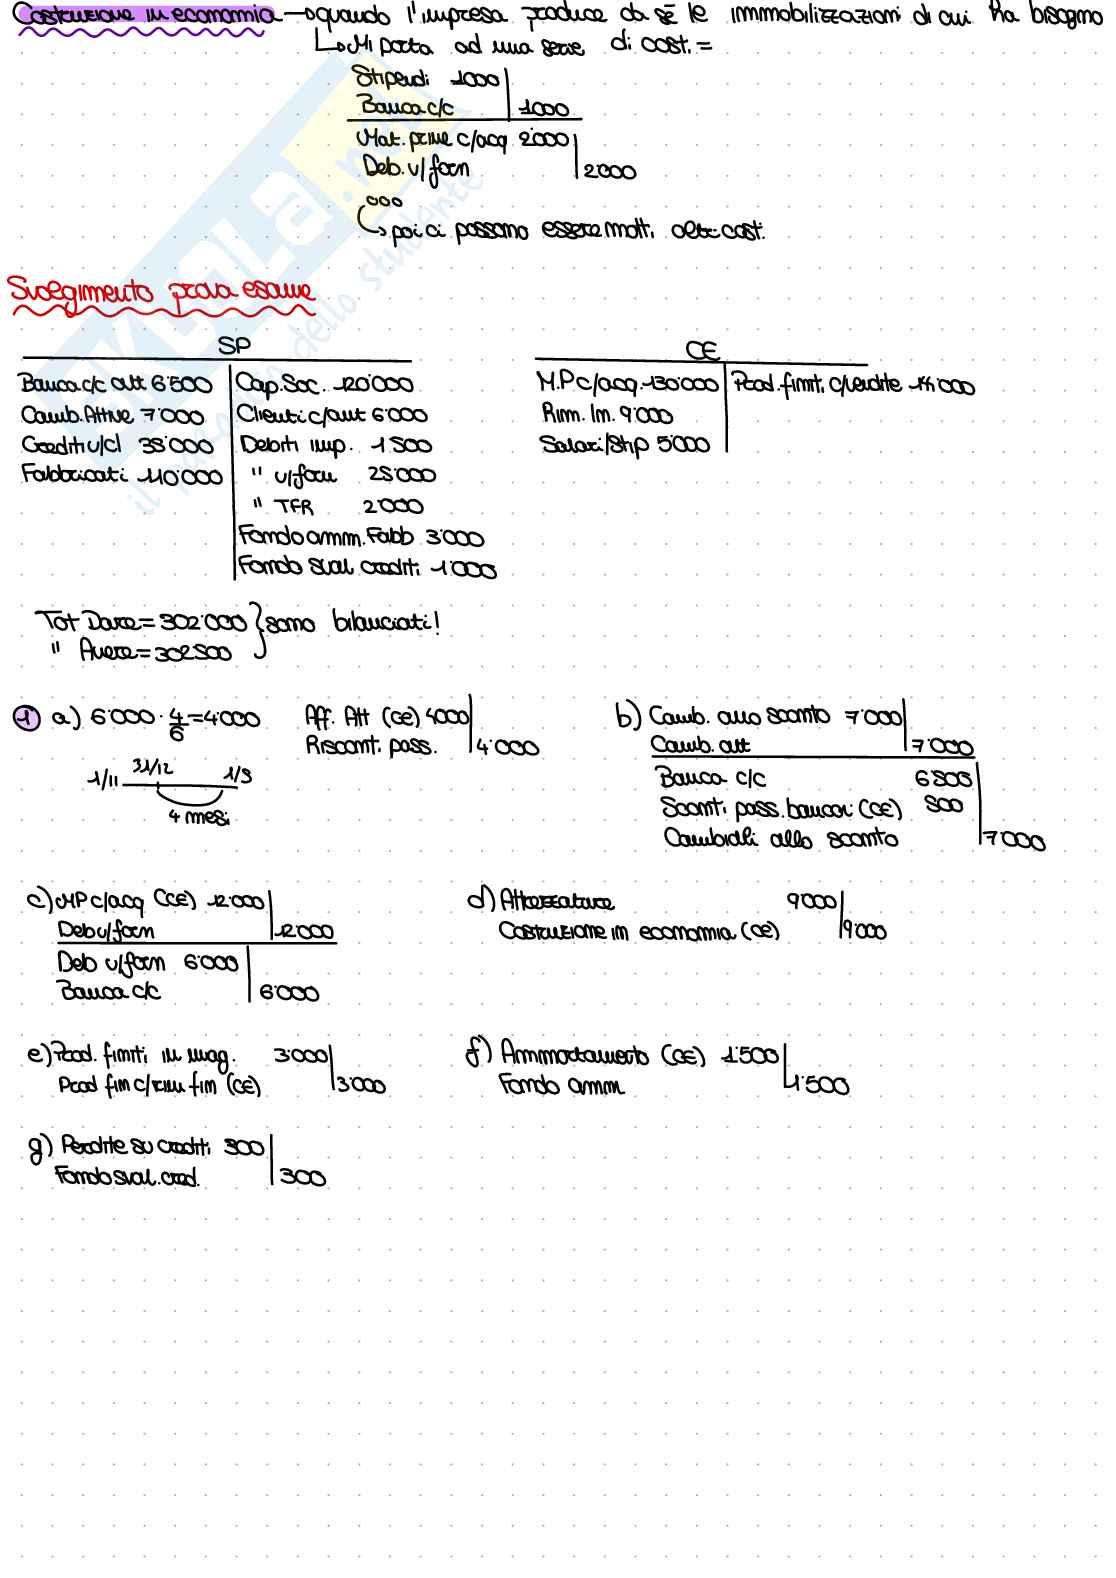 Costruzione in economia → quando l'impresa produce da sé le immobilizzazioni di cui ha bisogno
↳ Mi porta ad una serie di costi =
Stipendi 1000
Banca c/c 1000
Mat. prime c/acq 2000
Deb. v/forn 2000
ooo
↳ poi ci possono essere molti altri costi.
Svolgimento prova esame
SP
Banca c/c att 6'500 Cap. Soc. 120'000
Camb. Attive 7'000 Clienti c/ant 6'000
Crediti v/cl 35'000 Debiti imp. 1'500
Fabbricati 110'000 " v/forn 25'000
" TFR 2'000
Fondo amm. Fabb 3'000
Fondo sval crediti 1'000
CE
M.P c/acq. 130'000 Prod. finiti c/vendite 144'000
Rim. In. 9'000
Salari/Stip 5'000
Tot Dare = 302'000 } sono bilanciati!
" Avere = 302500
1 a) 6'000 · 4/6 = 4'000
1/11 31/12 1/5
4 mesi
Aff. Att (CE) 4000
Risconti pass. 4'000
b) Camb. allo sconto 7'000
Camb. att 7'000
Banca c/c 6500
Sconti pass. bancari (CE) 500
Cambiali allo sconto 7'000
c) MP c/acq (CE) 12'000
Deb v/forn 12'000
Deb v/forn 6'000
Banca c/c 6'000
d) Attrezzature 9'000
Costruzione in economia (CE) 9'000
e) Prod. finiti in mag. 3'000
Prod fin c/rim fin (CE) 3'000
f) Ammortamento (CE) 1'500
Fondo amm 1'500
g) Perdite su crediti 300
Fondo sval. cred. 300
il dello studente